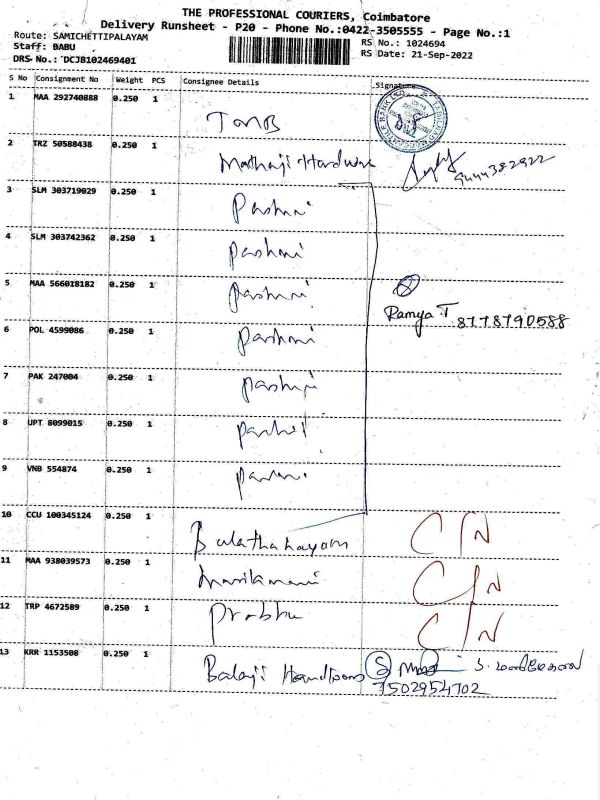 THE PROFESSIONAL COURIERS, Coimbatore
Delivery Runsheet - P20 - Phone No.:0422-3505555 - Page No.:1
Route: SAMICHETTIPALAYAM
RS No.: 1024694
Staff: BABU
RS Date: 21-Sep-2022
DRS No.: DCJB102469401
S No Consignment No Weight PCS Consignee Details Signature
1 MAA 292740888 0.250 1 TMB
2 TRZ 50588438 0.250 1 Mathaji Hardware
3 SLM 303719029 0.250 1 Pashmi
4 SLM 303742362 0.250 1 pashmi
5 MAA 566018182 0.250 1 pashmi
Ramya T 8778790588
6 POL 4599086 0.250 1 pashmi
7 PAK 247004 0.250 1 pashmi
8 UPT 8099015 0.250 1
9 VNB 554874 0.250 1
10 CCU 100345124 0.250 1 C/N
11 MAA 938039573 0.250 1 C/N
12 TRP 4672589 0.250 1 Prabhu C/N
13 KRR 1153508 0.250 1 Balaji
7502954702